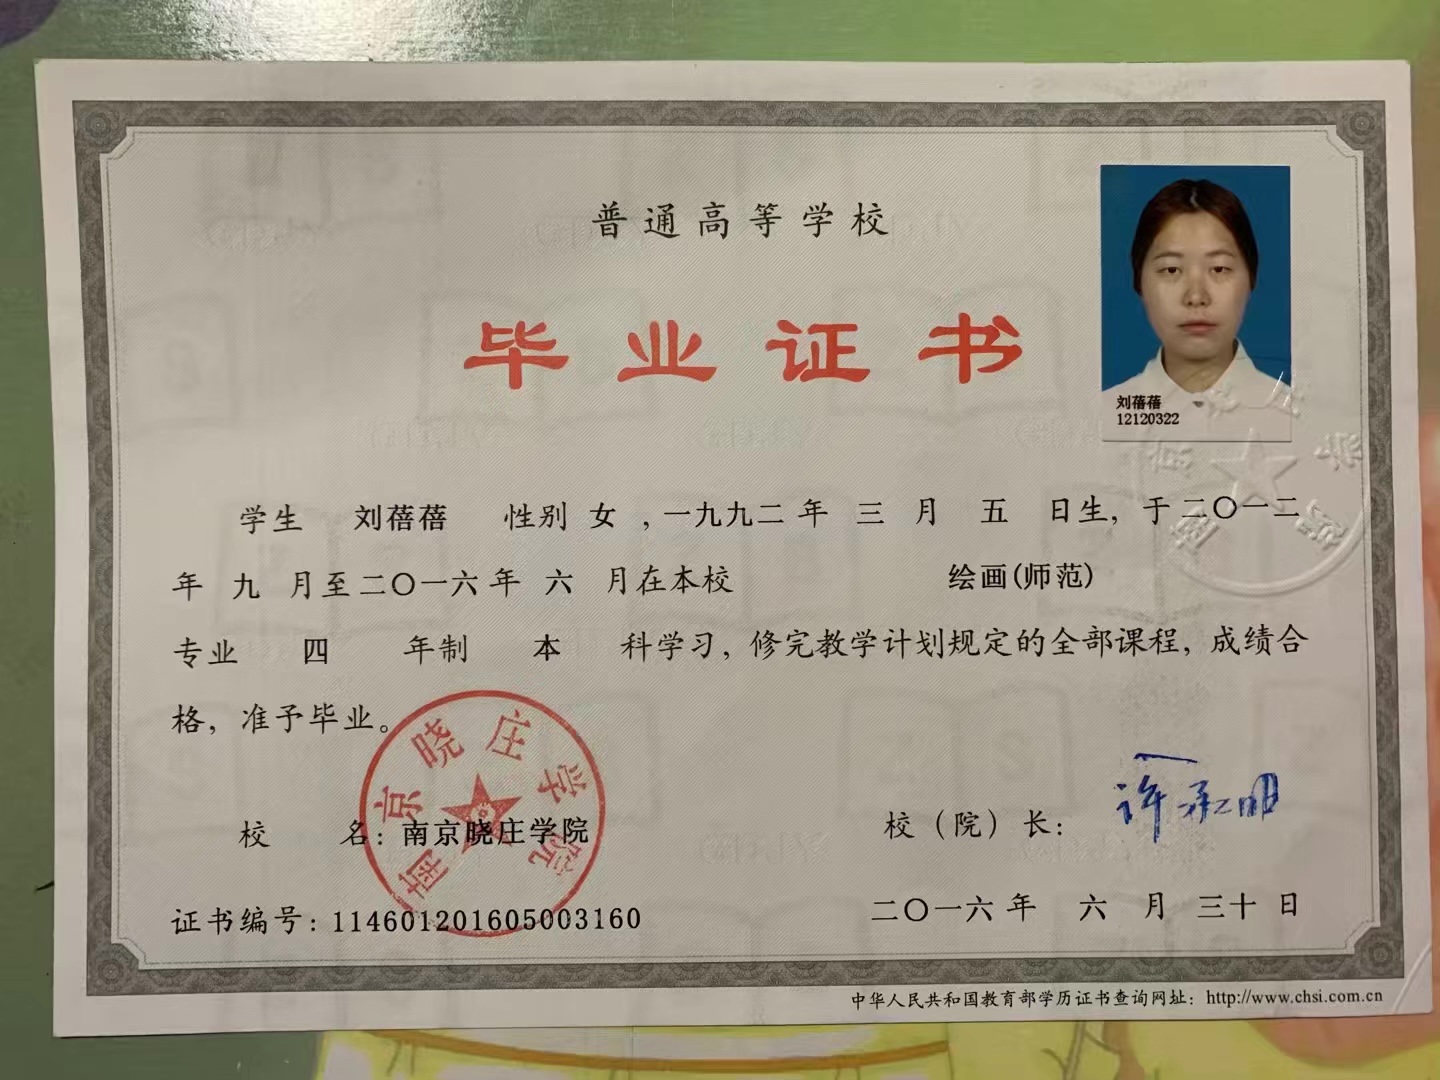 普通高等学校
毕业证书
刘蓓蓓
12120322
学生 刘蓓蓓 性别 女 ，一九九二 年 三 月 五 日生，于 二〇一二
年 九 月至 二〇一六 年 六 月在本校 绘画(师范)
专业 四 年制 本 科学习，修完教学计划规定的全部课程，成绩合
格，准予毕业。
南京晓庄学院
校 名：南京晓庄学院
校（院）长：
许承明
证书编号：114601201605003160
二〇一六 年 六 月 三十 日
中华人民共和国教育部学历证书查询网址：http://www.chsi.com.cn